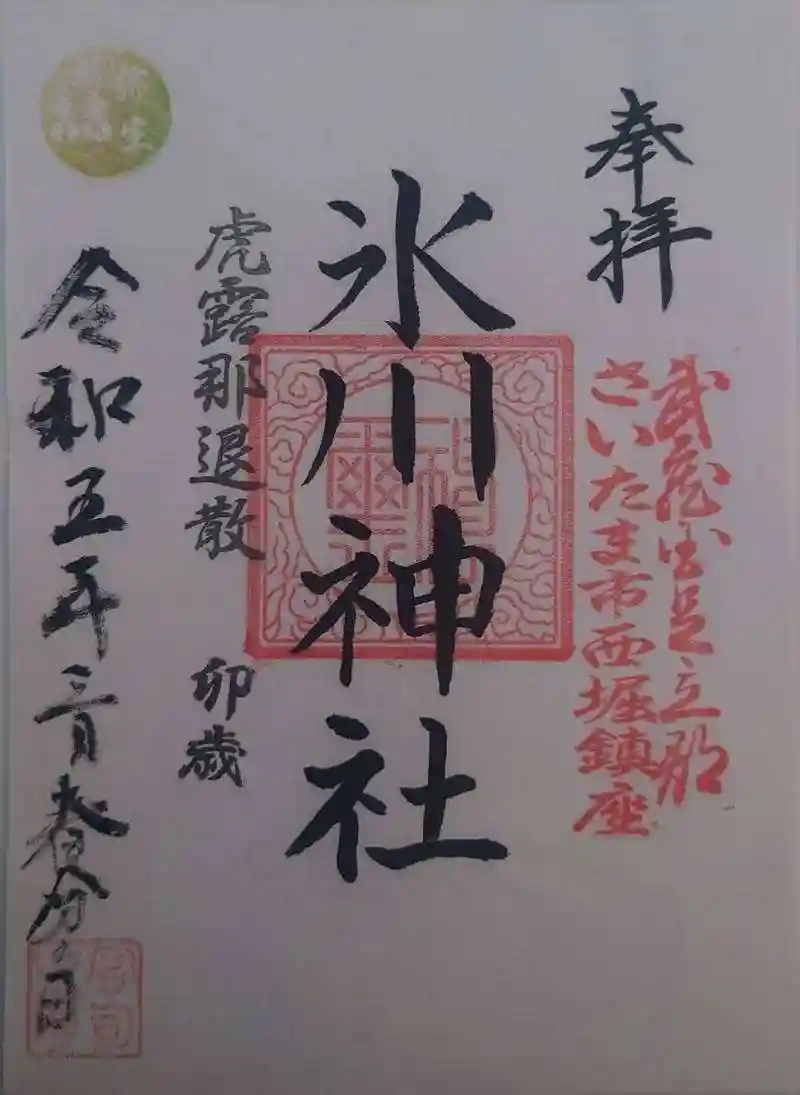 奉拝
武蔵国足立郡
さいたま市西堀鎮座
氷川神社
虎露那退散 卯歳
令和五年三月春分の日
弥生
宮司